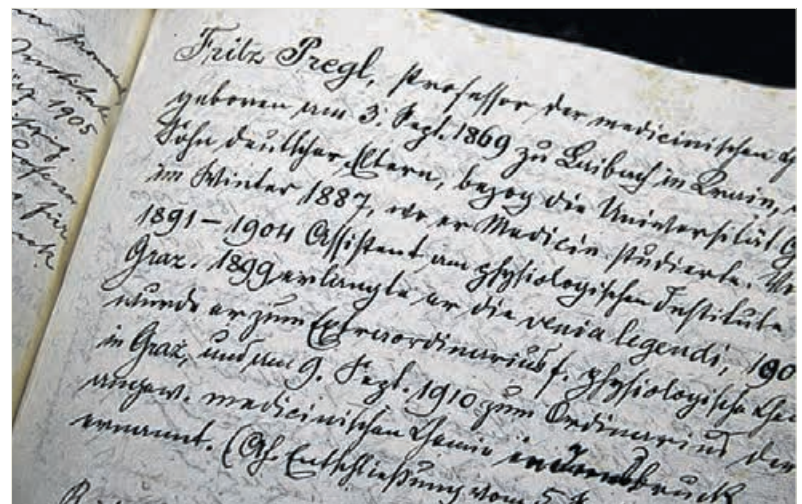 Institute
1905
für
Fritz Pregl, Professor der medicinischen
geboren am 3. Sept. 1869 zu Laibach in Krain,
Sohn deutscher Eltern, bezog die Universität
im Winter 1887, wo er Medicin studierte.
1891–1904 Assistent am physiologischen Institute
Graz. 1899 erlangte er die venia legendi, 190
wurde er zum Extraordinarius f. physiologische
in Graz, und am 9. Sept. 1910 zum Ordinarius der
angew. medicinischen Chemie in Innsbruck
ernannt. (Ah. Entschließung vom 5.